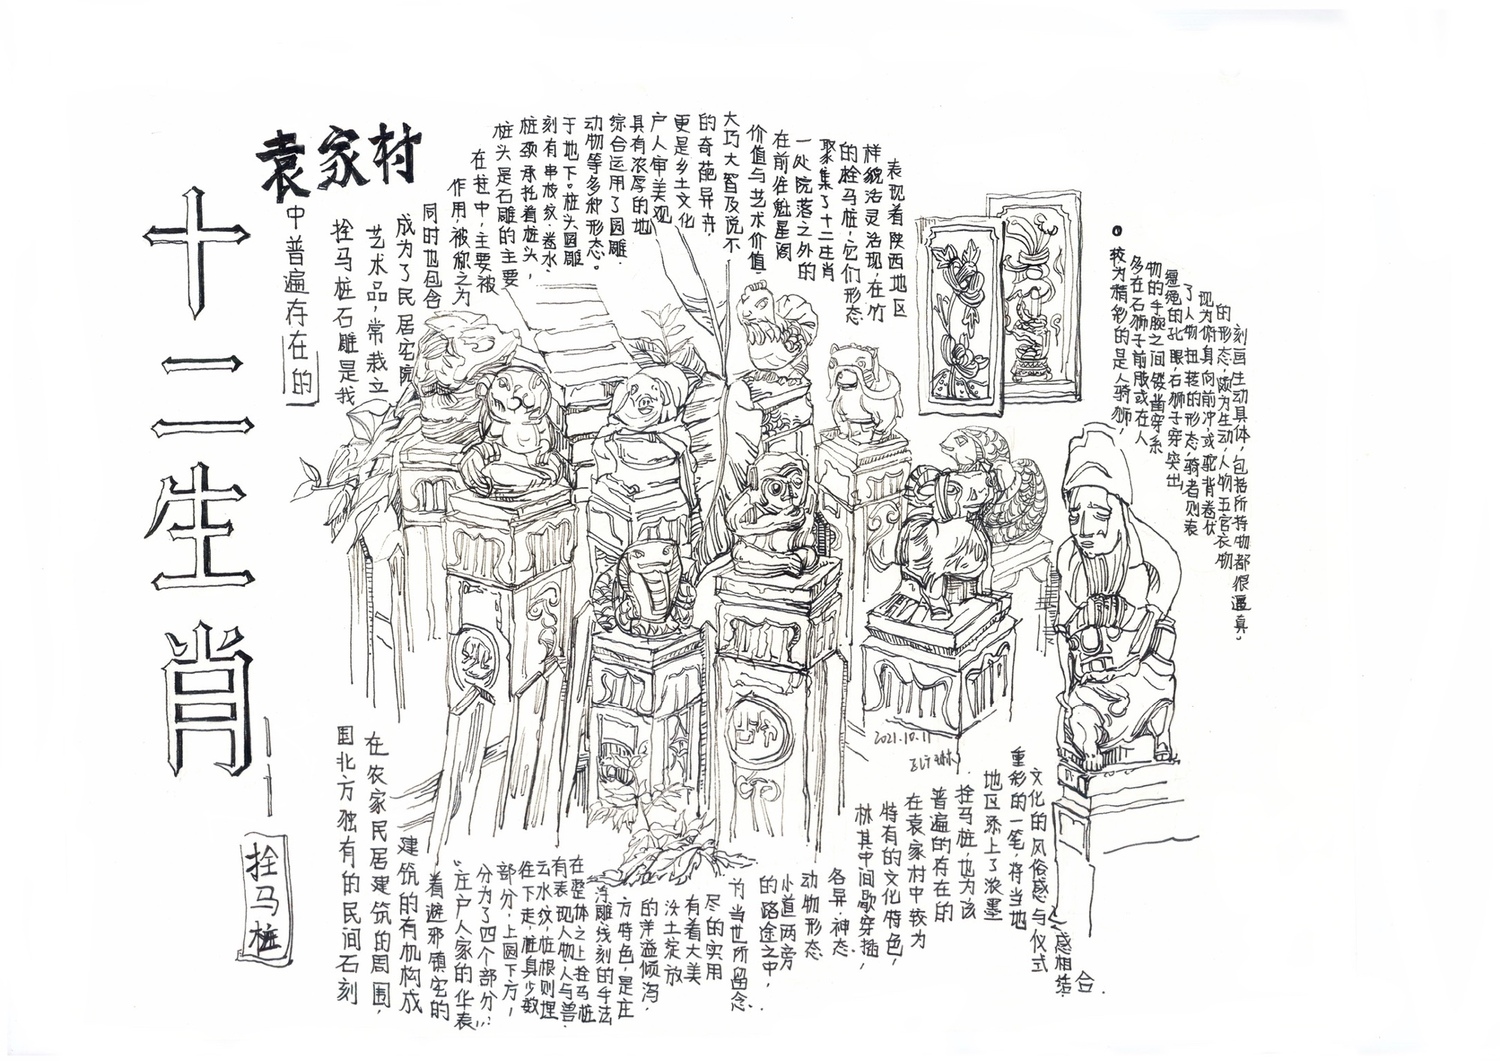 袁家村
十二生肖
拴马桩
中普遍存在的
拴马桩石雕是我
国北方独有的民间石刻
艺术品，常栽立
在农家民居建筑的周围，
成为了民居宅院
建筑的有机构成
同时也包含
着避邪镇宅的
作用，被称之为
“庄户人家的华表
在桩中，主要被
分为了四个部分
桩头是石雕的主要
部分，上圆下方，
桩颈承托着桩头，
往下走，桩身少数
刻有串枝纹·卷水
云水纹，桩根则埋
于地下。桩头圆雕
有表现人物，人与兽，
动物等多种形态。
在整体之上拴马桩
综合运用了圆雕.
浮雕线刻的手法
具有浓厚的地
方特色，是庄
户人审美观
的洋溢倾泻，
更是乡土文化
沃土绽放
的奇葩异卉
有着大美
大巧大智及说不
尽的实用
价值与艺术价值
为当世所留念..
在前往魁星阁
的路途之中，
一处院落之外的
小道两旁
聚集了十二生肖
动物形态
的拴马桩，它们形态
各异，神态
样貌活灵活现，在竹
林其中间歇穿插，
表现着陕西地区
特有的文化特色，
在袁家村中较为
普遍的存在的
拴马桩，也为该
地区添上了浓墨
重彩的一笔，将当地
文化的风俗感与仪式
感相结合.
较为精彩的是人骑狮，
多在石狮子前肢或在人
物的手腕之间镂凿穿系
缰绳的孔眼，石狮子穿突出
了人物扭转的形态，骑者则表
现为俯身向前冲，或驼背卷伏
的形态，颇为生动，人物五官衣物
刻画生动具体，包括所持物都很逼真。
2021.10.11